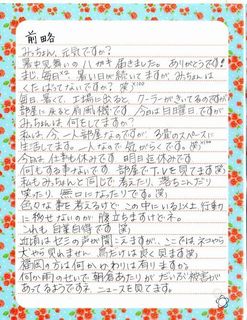 前略
みっちゃん、元気ですか？
暑中見舞いのハガキ届きました。ありがとう！
まじ、毎日々 暑い日が続いてますが、みっちゃんは
くたばってないですか？(笑)
毎日、暑くて、工場に出ると、クーラーがきいてるのですが
部屋に戻ると扇風機です。今日は日曜日ですが
みっちゃんは、何をしてますか？
私は、今、一人部屋なのですが、3畳のスペースに
生活してます。一人なので気がらくです。(笑)
今日は仕事も休みです。明日も休みです
何もする事ないです。部屋でT.Vを見てます(笑)
私もみっちゃんと同じで考えたり、落ちこんだり
笑ったり、無口になったりです。(笑)
色々な事を考えるけど、この中にいる以上、行動
に移せないのが腹立ちますけどネ。
これも自業自得です(笑)
近頃はセミの声が聞こえますが、ここではネコやら
犬やら見れません 鳥だけは良く見ます(笑)
福岡の方は何かかわりは有りますか
何か雨のせいで朝倉あたりがだいぶ被害が
あってるようですネ、ニュースを見てます。